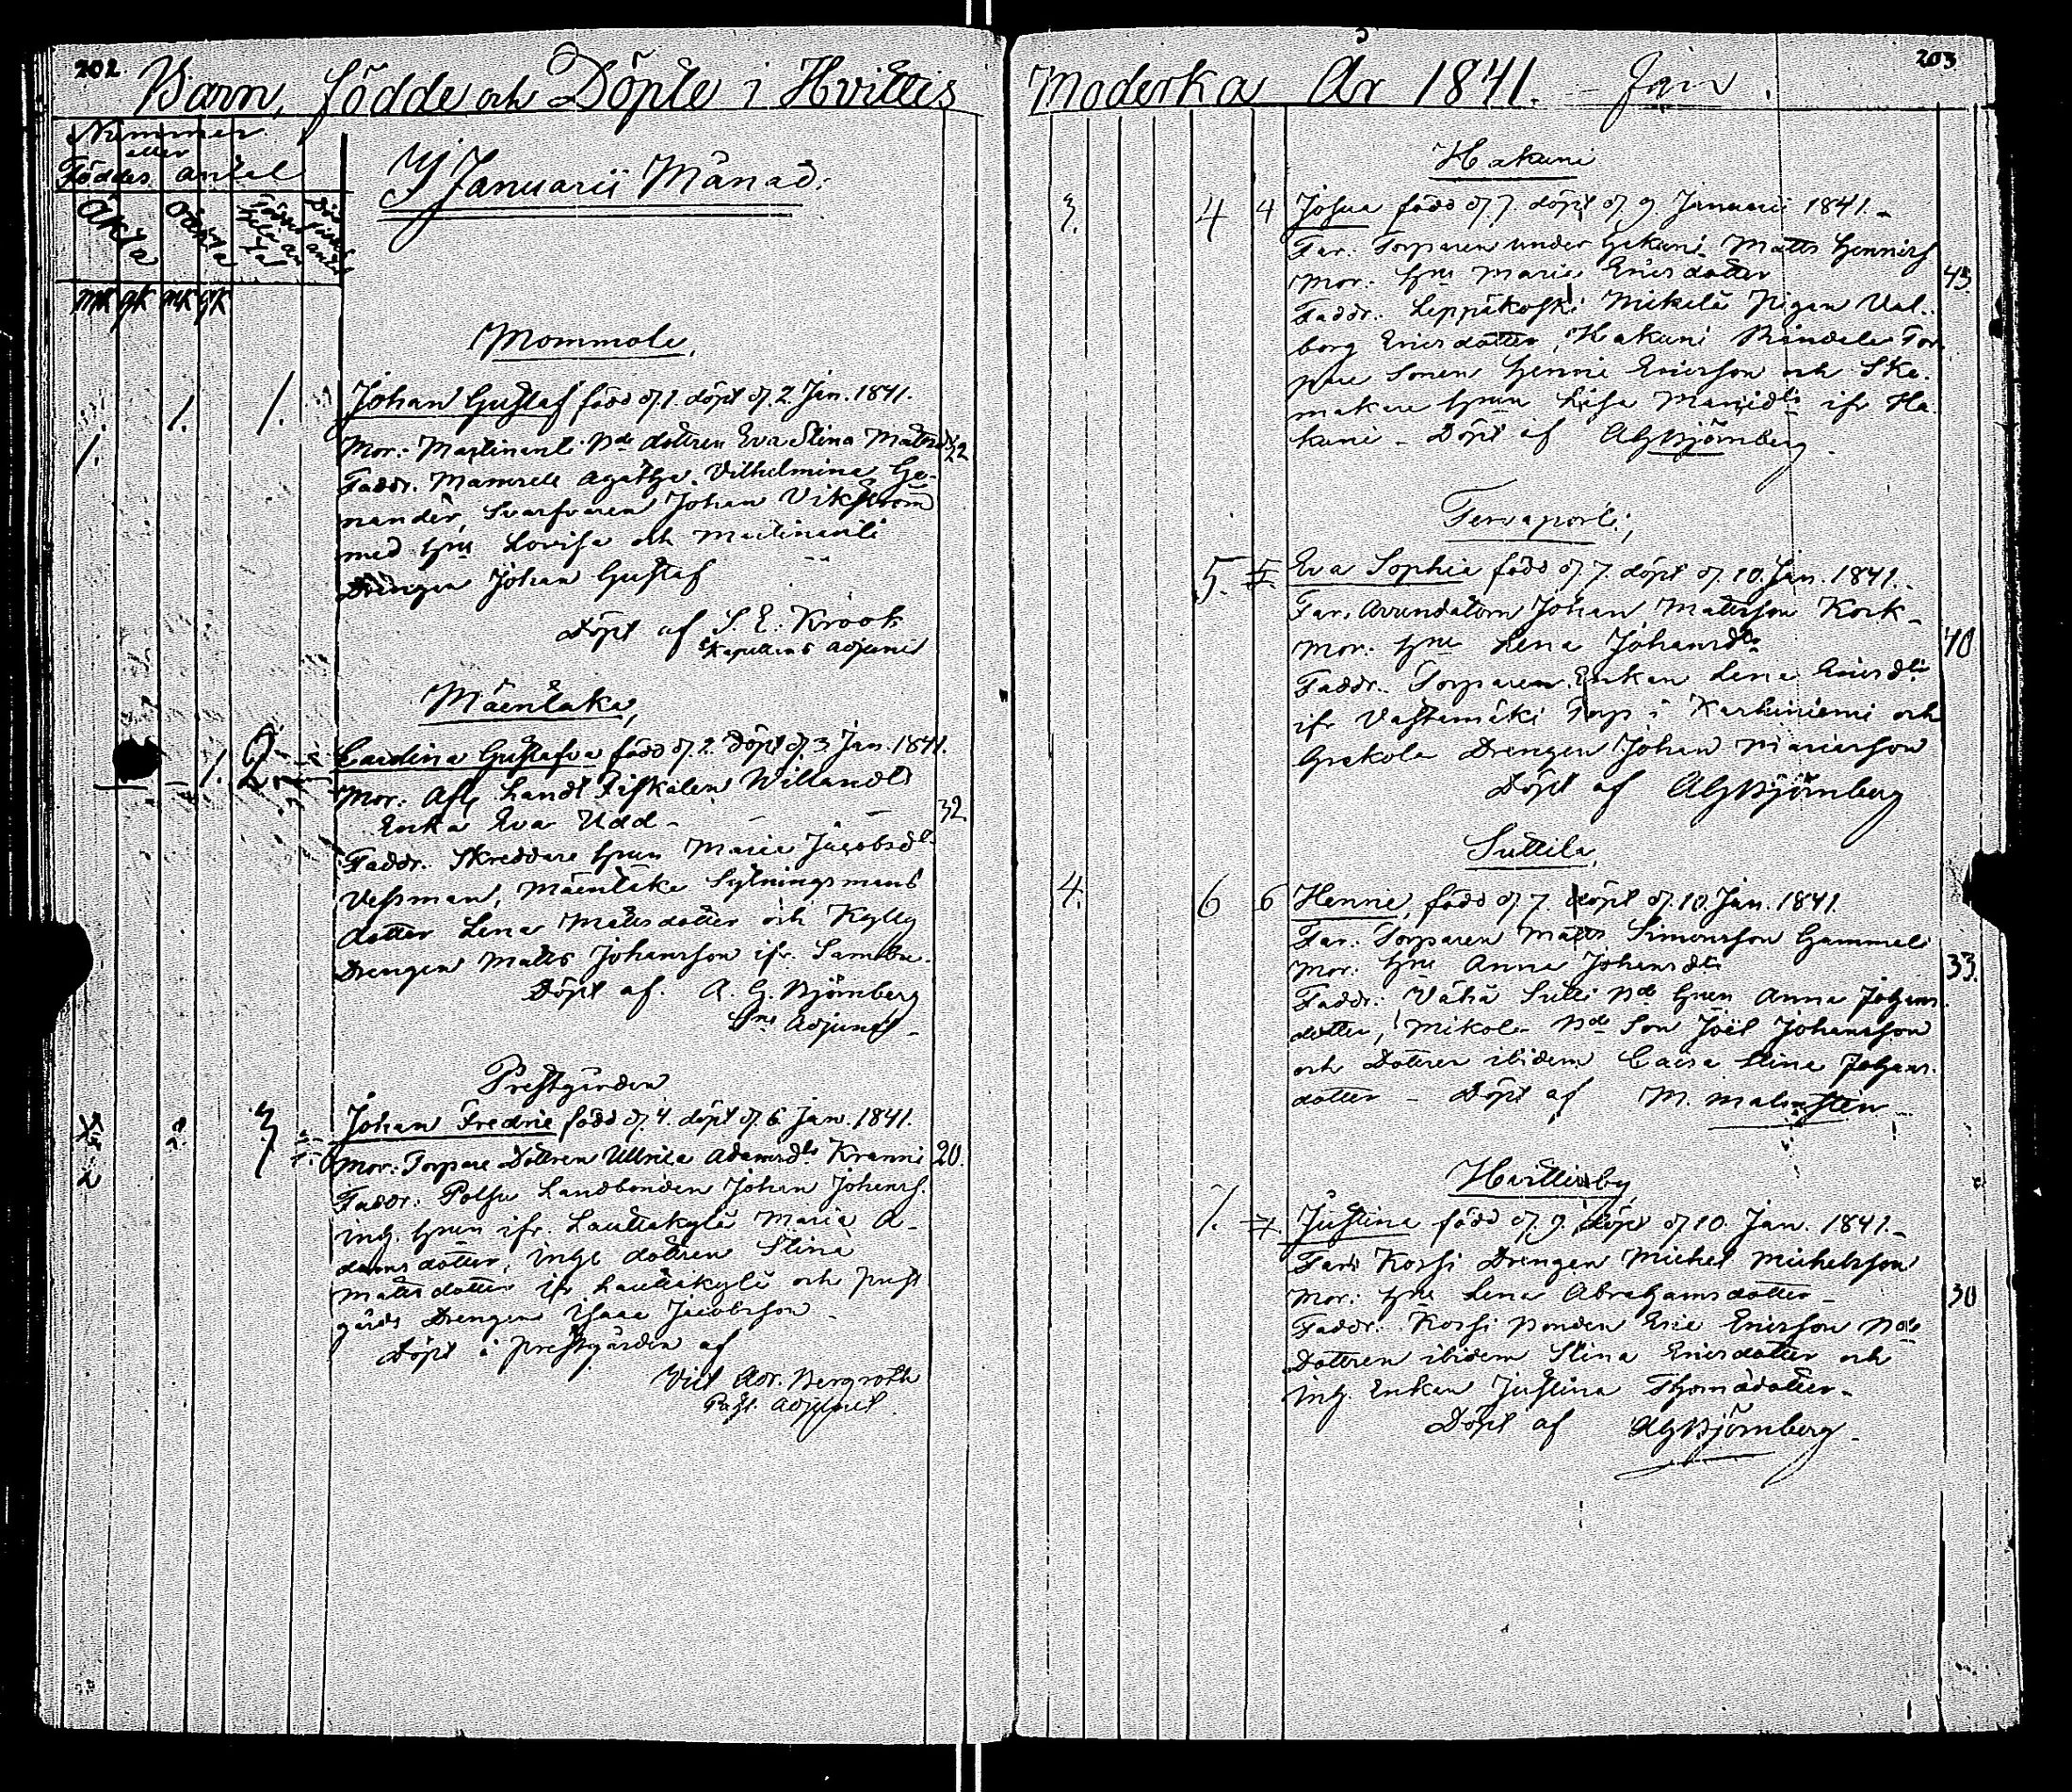 202
Barn, födde och Döpte i Hvittis
Nummer
efter
Föddes antal
Äkta
Oäkta
mk qk mk qk
I Januarii Månad:
Mommola,
1. 1. 1.
Johan Gustaf född d. 1. döpt d. 2 Jan. 1841.
Mor: Martinanti Bde dottren Eva Stina Mattsd 22
Faddr. Mamsele Agatha Vilhelmina Ge-
nander, Svarfvaren Johan Vikström
med hu Lovisa och Martinanti
Drengen Johan Gustaf
Döpt af S. E. Krook
Kapellans adjunct
Mäenlaka,
1. 2.
Carolina Gustafva född d. 2. Döpt d. 3 Jan. 1841.
Mor: Afl. Landt Fiskalen Willandts
Enka Eva Udd - 32
Faddr. Skreddare hun Maria Jacobsdr
Vessman, Mäenlaka Sytningsmans
dotter Lena Mattsdotter och Kylly
Drengen Matts Johansson ifr. Sambu.
Döpt af. A. G. Björnberg
Adjunct -
Prestgården
2 2. 3
Johan Fredric född d. 4. döpt d. 6. Jan. 1841.
Mor: Torpare Dottren Ullrica Adamsdr Kranni 20.
Faddr: Polsu Landbonden Johan Johans.
Ing. hun ifr. Lauttakylä Maria A-
damsdotter, Inge dottren Stina
Mattsdotter ifr Lauttakylä och prest
gårds Drengen Isaac Jacobsson
Döpt i prestgården af
Vict Adr. Bergroth
Past. adjunct.
203
Moderka År 1841. - Jan.
Hakuni
3. 4 4
Josua född d. 7. döpt d. 9 Januarii 1841. -
Far: Torparen under Hakuni Matts Henrics
Mor: hu Maria Ericsdotter 43
Faddr: Leppäkoski Mickelä Pigan Val-
borg Ericsdotter, Hakuni Rindala Tor-
pare Sonen Henric Ericsson och Sko-
makare hun Lisa ifr Ha-
kuni - Döpt af AGBjörnberg
5. 5
Eva Sophia född d. 7. döpt d. 10. Jan. 1841.
Far. Johan Mattsson Kork-
Mor: hu Lena Johansdr 40
Faddr. Torparen Enkan Lena Ericsdr
ifr Vastamäki Torp i Karhiniemi och
Drengen Johan
Döpt af AGBjörnberg
Suttila,
4. 6 6
Henric, född d. 7. döpt d. 10. Jan. 1841.
Far: Torparen Matts Simonsson Gammels
Mor: hu Anna Johansdr 33.
Faddr: Vähä Sutti Bde hun Anna Johans-
dotter, Mikola Bde Son Joël Johansson
och Dottren ibidem Caisa Stina Johans-
dotter - Döpt af M. Malmsten
Hvittisby
7. 7
Justina född d. 9. döpt d. 10. Jan. 1841. -
Far: Kossi Drengen Michel Michelsson
Mor: hu Lena Abrahamsdotter - 30
Faddr. Kossi Bonden Eric Ericsson Bde
Dottren ibidem Stina Ericsdotter och
Ing. Enkan Justina Thomasdotter -
Döpt af AGBjörnberg -